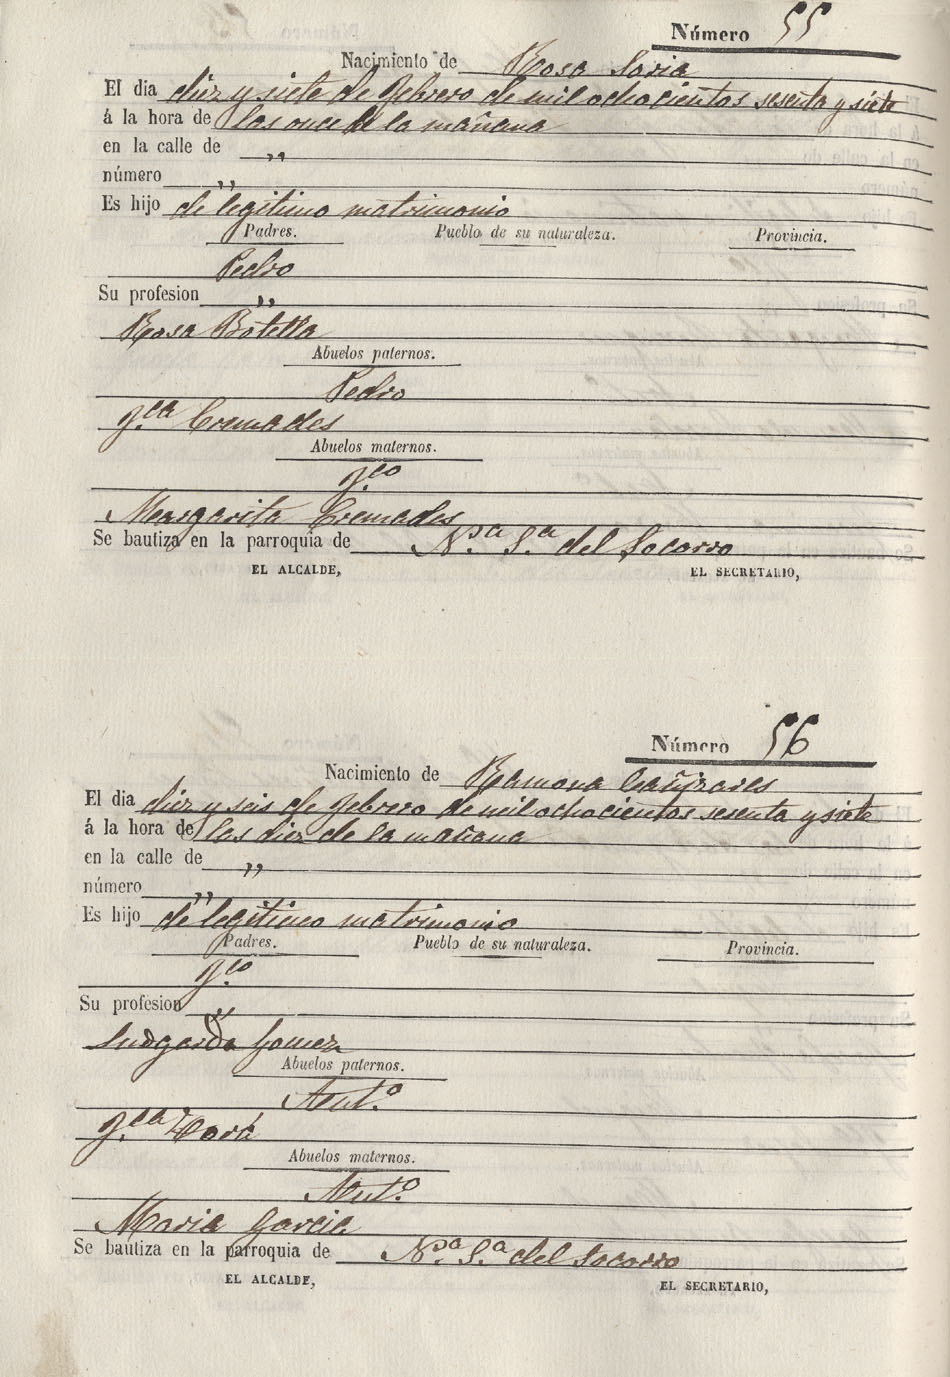 Número 55
Nacimiento de Rosa Soria
El dia diez y siete de Febrero de mil ochocientos sesenta y siete
á la hora de las once de la mañana
en la calle de „
número „
Es hijo de legitimo matrimonio
Padres. Pueblo de su naturaleza. Provincia.
Pedro
Su profesion „
Rosa Botella
Abuelos paternos.
Pedro
F.ca Cremades
Abuelos maternos.
F.co
Margarita Cremades
Se bautiza en la parroquia de N.ra S.a del Socorro
EL ALCALDE, EL SECRETARIO,
Número 56
Nacimiento de Ramona Cañizares
El dia diez y seis de Febrero de mil ochocientos sesenta y siete
á la hora de las diez de la mañana
en la calle de „
número „
Es hijo de legitimo matrimonio
Padres. Pueblo de su naturaleza. Provincia.
F.co
Su profesion „
Ludgarda Gomez
Abuelos paternos.
Ant.o
F.ca
Abuelos maternos.
Ant.o
Maria Garcia
Se bautiza en la parroquia de N.ra S.a del Socorro
EL ALCALDE, EL SECRETARIO,